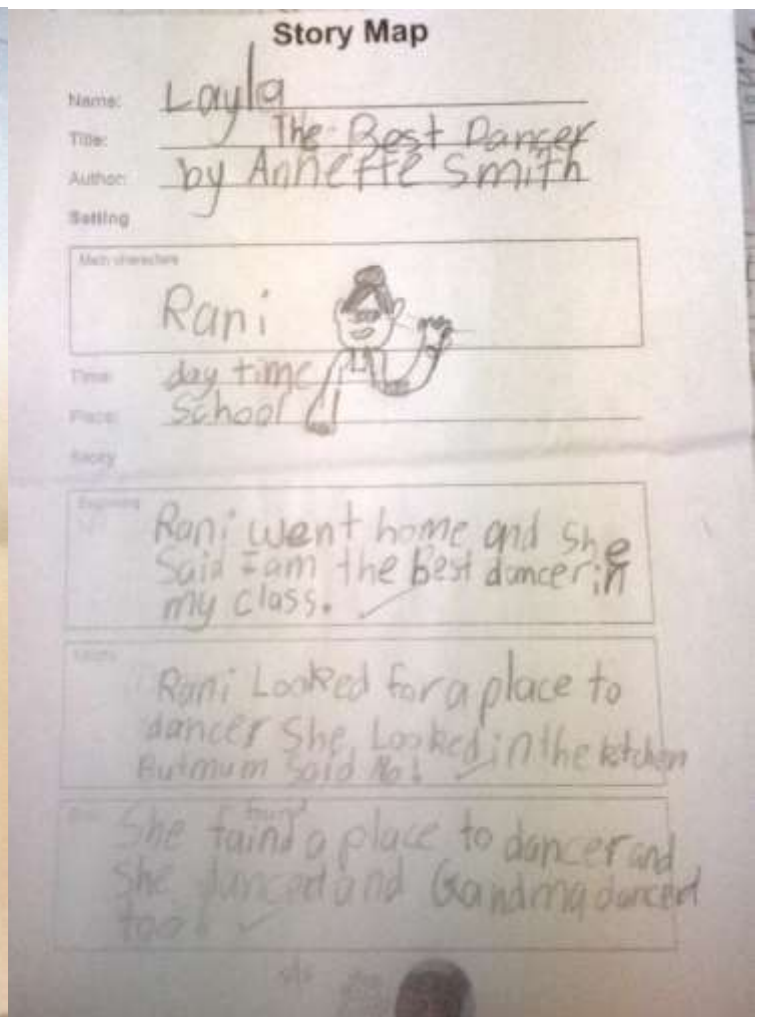 Story Map
Name: Layla
Title: The Best Dancer
Author: by Annette Smith
Setting
Main characters
Rani
Time: day time
Place: School
Beginning
Rani went home and she
Said I am the Best dancer in
my class.
Rani Looked for a place to
dancer She Looked in the kitchen
But mum Said No!
found
She faind a place to dancer and
She danced and Gandma danced
too!